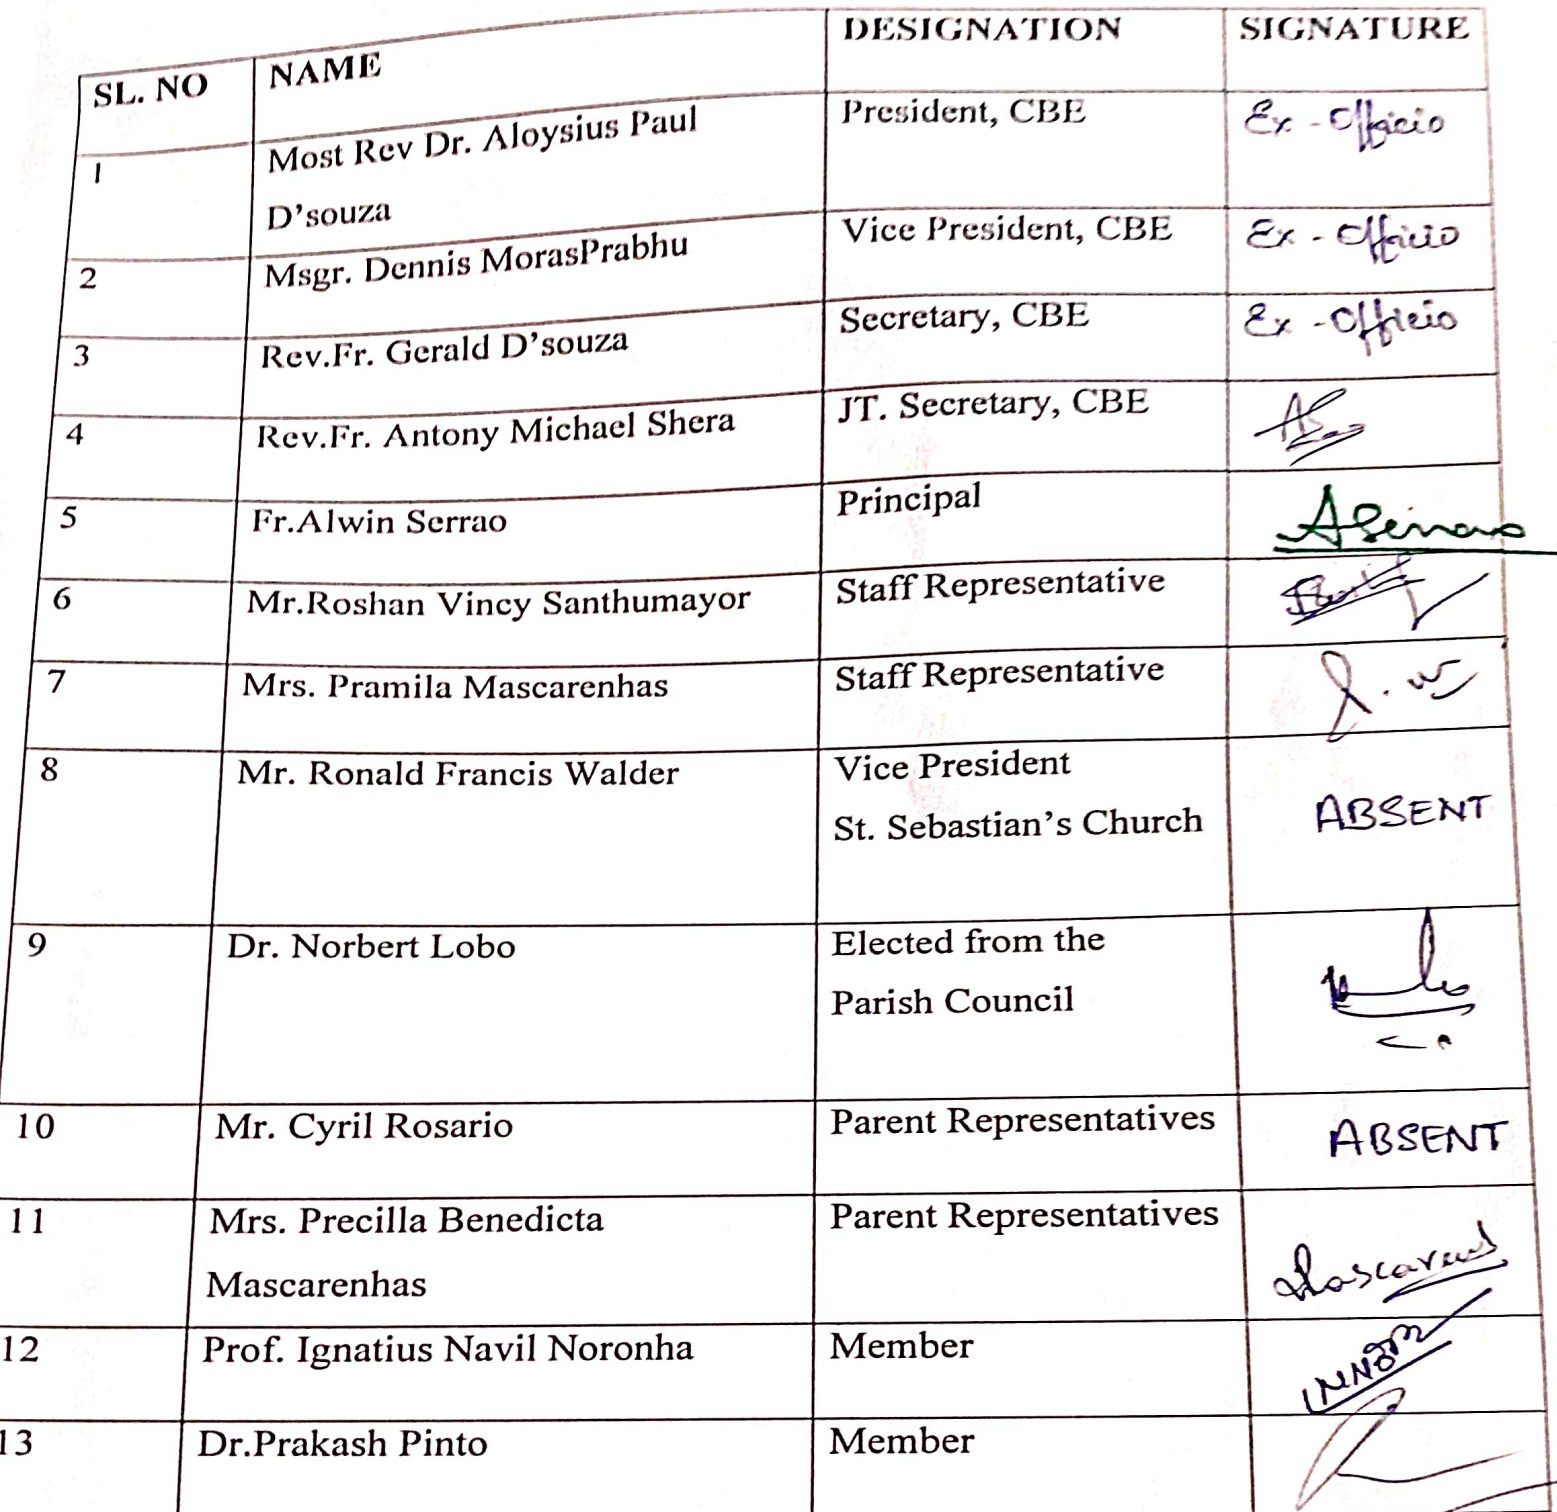 SL. NO NAME DESIGNATION SIGNATURE
1 Most Rev Dr. Aloysius Paul President, CBE Ex-Officio
D'souza
2 Msgr. Dennis MorasPrabhu Vice President, CBE Ex-Officio
3 Rev.Fr. Gerald D'souza Secretary, CBE Ex-Officio
4 Rev.Fr. Antony Michael Shera JT. Secretary, CBE
5 Fr.Alwin Serrao Principal
6 Mr.Roshan Vincy Santhumayor Staff Representative
7 Mrs. Pramila Mascarenhas Staff Representative
8 Mr. Ronald Francis Walder Vice President
St. Sebastian's Church ABSENT
9 Dr. Norbert Lobo Elected from the
Parish Council
10 Mr. Cyril Rosario Parent Representatives ABSENT
11 Mrs. Precilla Benedicta Parent Representatives
Mascarenhas
12 Prof. Ignatius Navil Noronha Member
13 Dr.Prakash Pinto Member